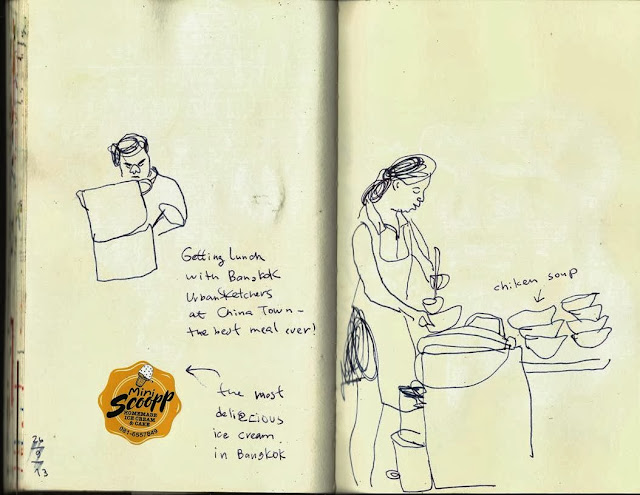 Getting Lunch
with Bangkok
UrbanSketchers
at China Town -
the best meal ever!
Mini
Scoopp
HOMEMADE
ICE CREAM
& CAKE
081-5557849
the most
delicious
ice cream
in Bangkok
9
13
chiken soup